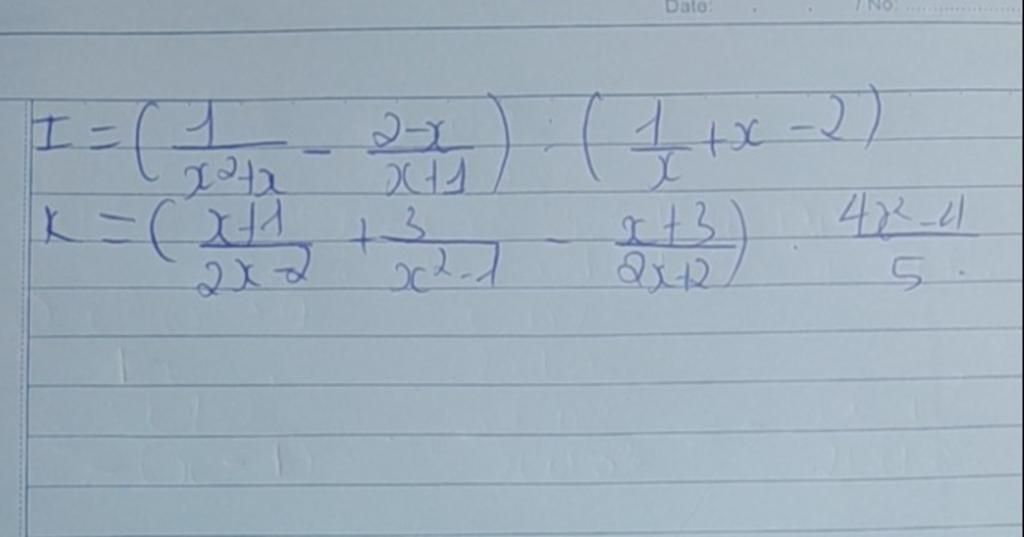 Date: . . / No: ..................
I = (1/(x²+x) - (2-x)/(x+1)) : (1/x + x - 2)
K = ((x+1)/(2x-2) + 3/(x²-1) - (x+3)/(2x+2)) . (4x²-4)/5.